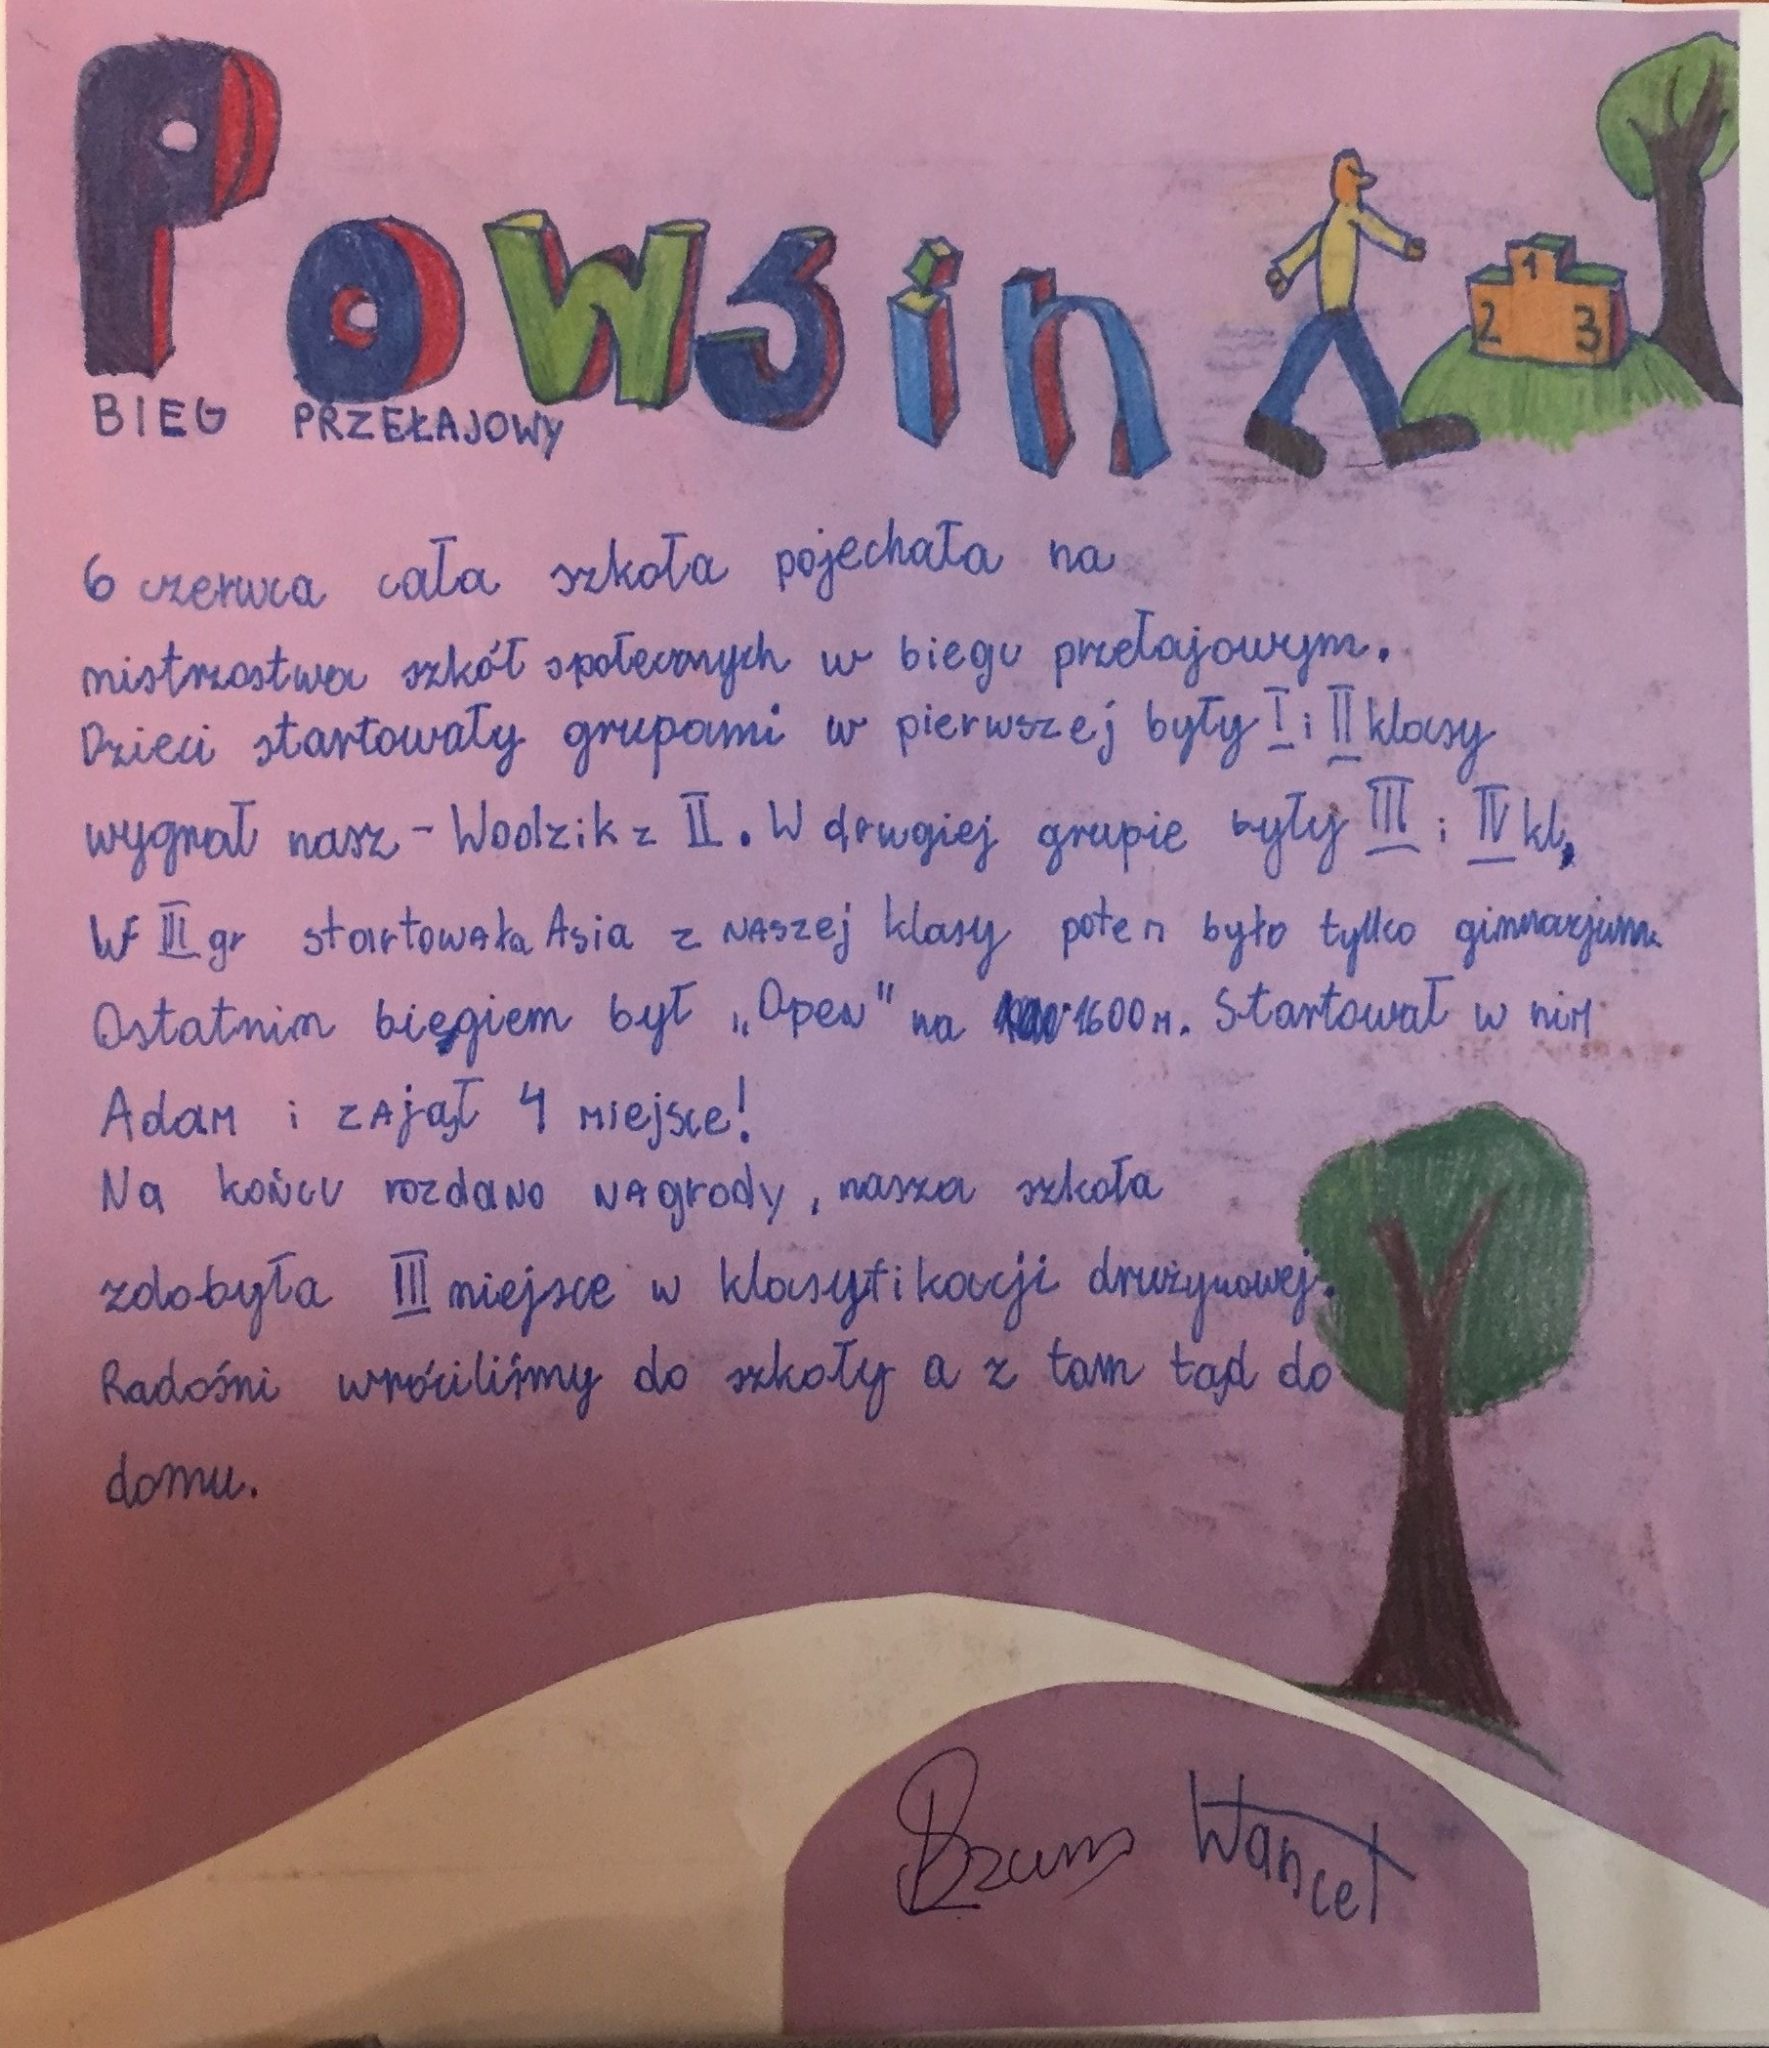 Powsin
1
2 3
BIEG PRZEŁAJOWY
6 czerwca cała szkoła pojechała na
mistrzostwa szkół społecznych w biegu przełajowym.
Dzieci startowały grupami w pierwszej były I i II klasy
wygrał nasz - Wodzik z II. W drugiej grupie były III i IV kl.
W III gr startowała Asia z naszej klasy potem było tylko gimnazjum
Ostatnim biegiem był „Open" na 1600m. Startował w nim
Adam i zajął 4 miejsce!
Na końcu rozdano nagrody, nasza szkoła
zdobyła III miejsce w klasyfikacji drużynowej.
Radośni wróciliśmy do szkoły a z tam tąd do
domu.
Wancet